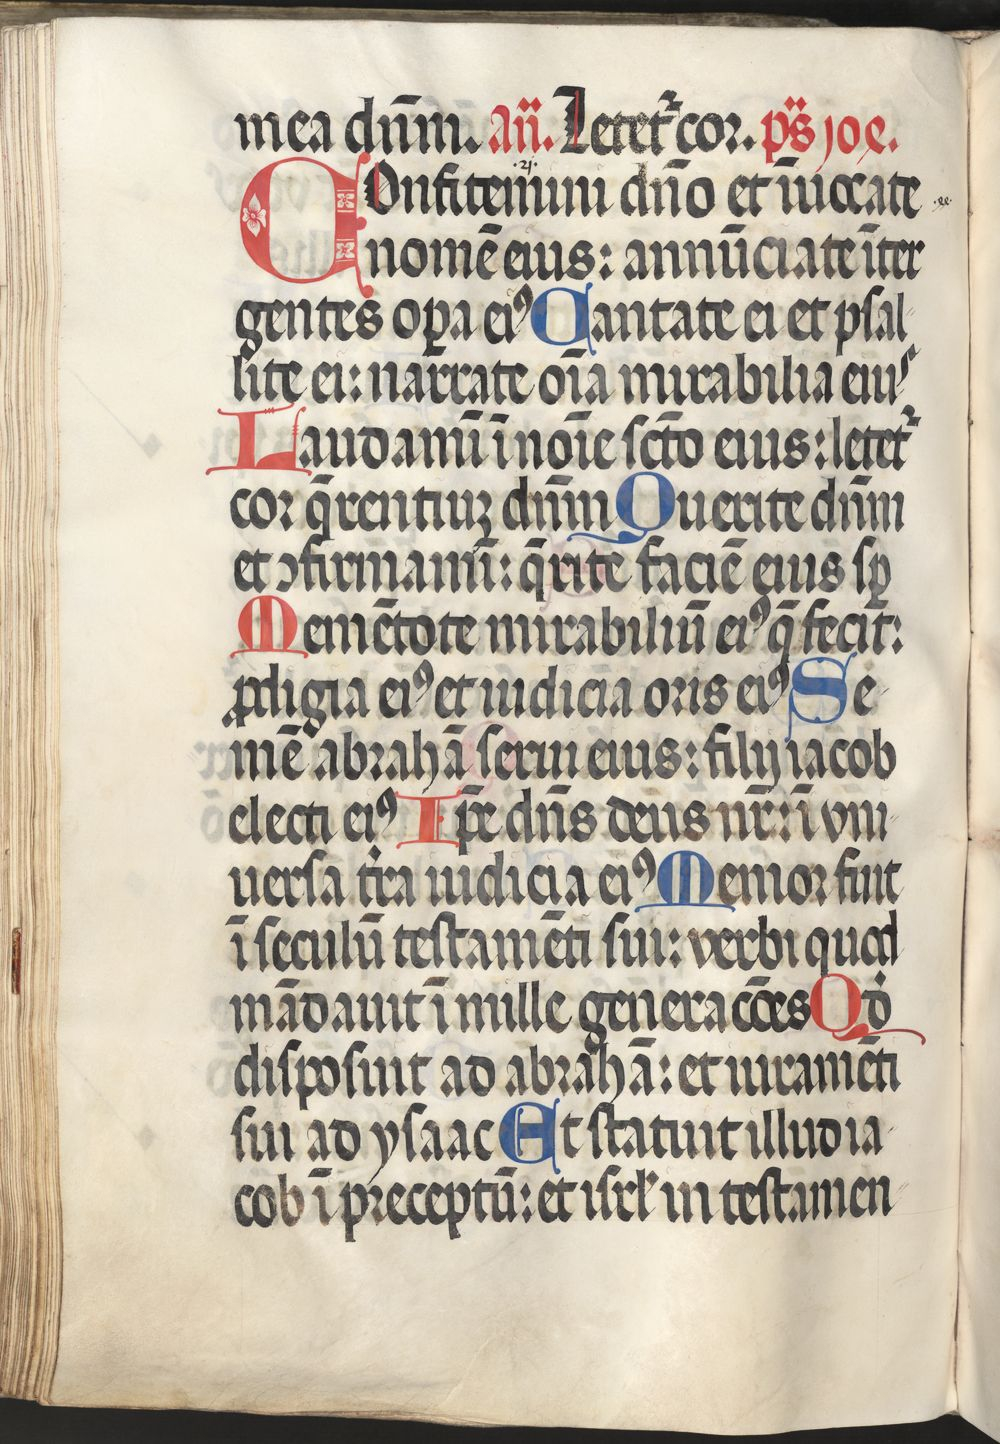 mea dn̄m. an̄. Letet᷑ cor. ps̄ joe.
COnfitemini dn̄o et īuocate
nomē eius: annūciate īter
gentes oꝑa eiꝰ Cantate ei et psal
lite ei: narrate oīa mirabilia eius
Laudamī ī noīe scto eius: letet᷑
cor q̄rentiuꝫ dn̄m Querite dn̄m
et ↄfirmamī: q̄rite faciē eius sꝑ
Memētote mirabiliū eiꝰ q̄ fecit:
ꝓdigia eiꝰ et iudicia oris eiꝰ Se
mē abrahā serui eius: filij iacob
electi eiꝰ Ip̄e dn̄s deus nr̄: ī vni
uersa tr̄a iudicia eiꝰ Memor fuit
ī seculū testamēti sui: verbi quod
mādauit ī mille generacōes Qd̓
disposuit ad abrahā: et iuramēti
sui ad ysaac Et statuit illud ia
cob ī preceptū: et isrl̓ in testamen